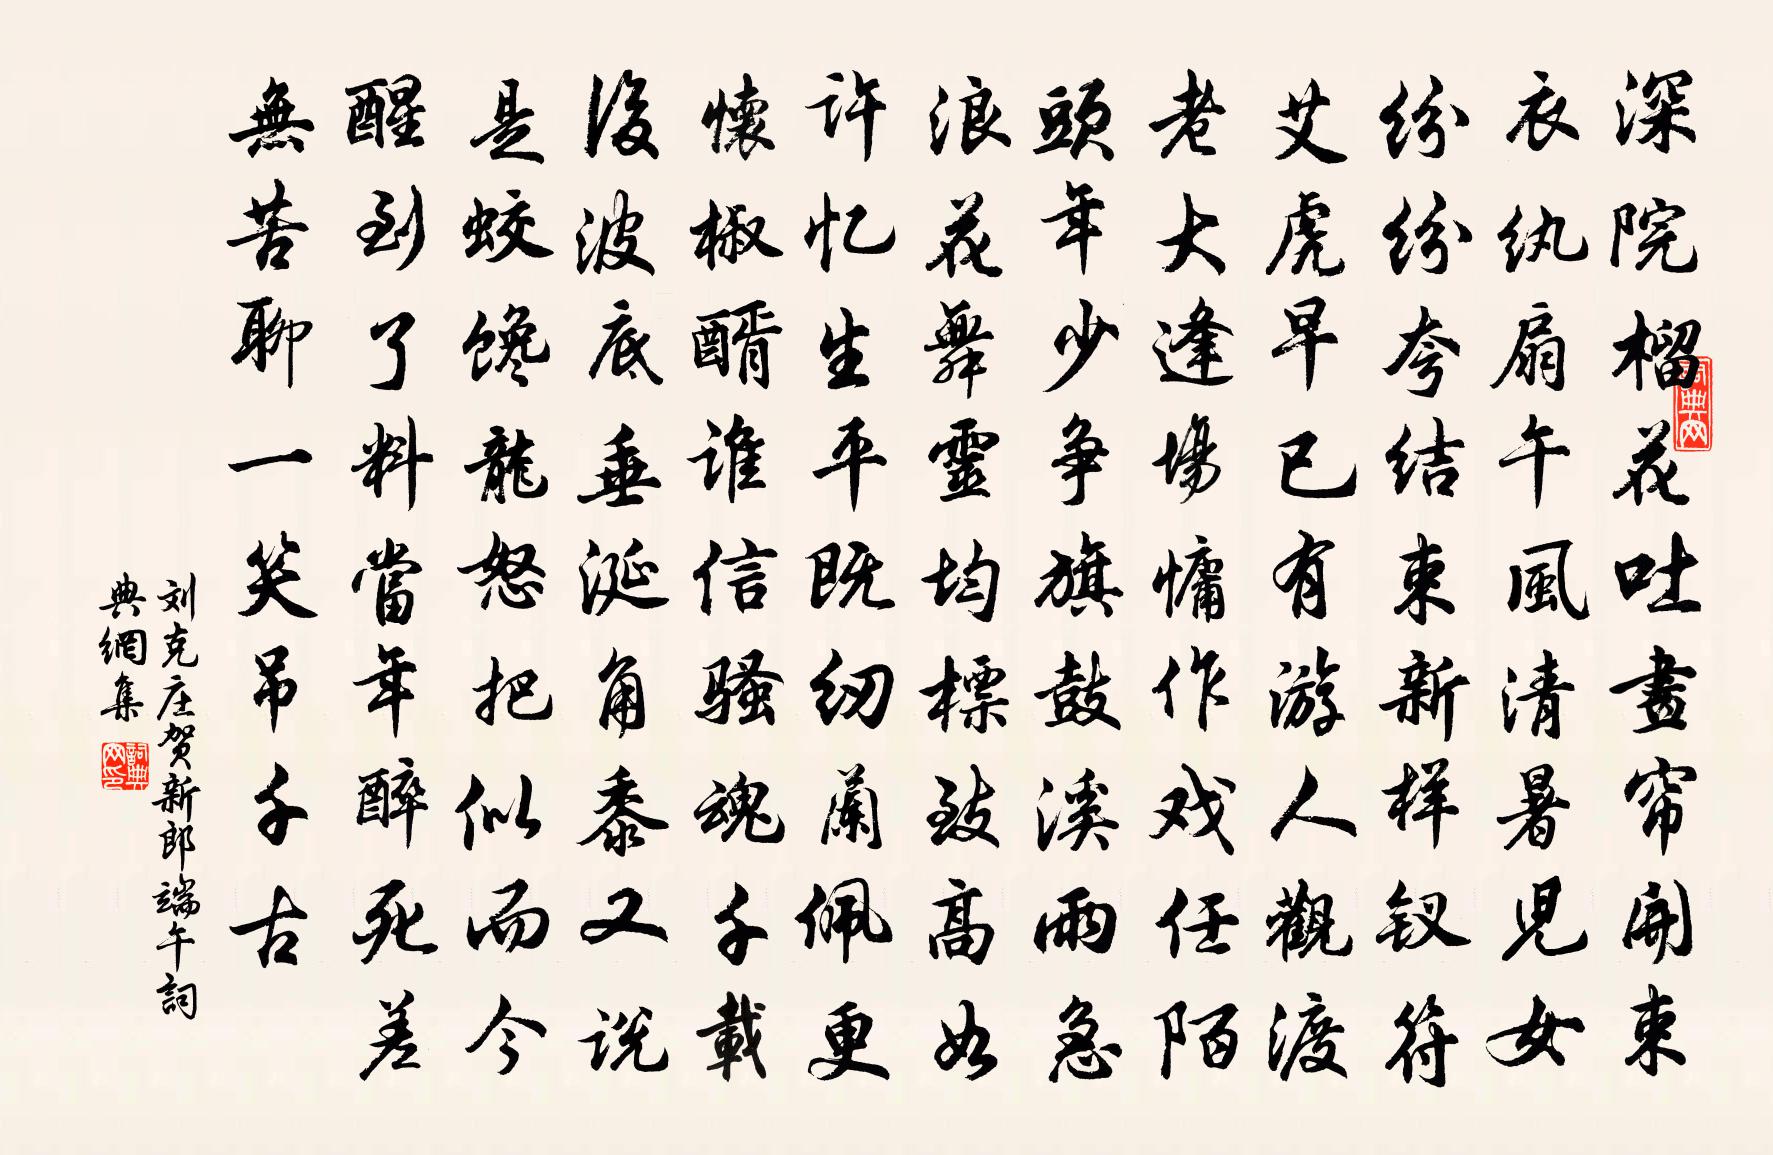 深院榴花吐畫帘開束
衣纨扇午風清暑兒女
纷纷夸结束新样钗符
艾虎早已有游人觀渡
老大逢場慵作戏任陌
頭年少争旗鼓溪雨急
浪花舞靈均標致高如
许忆生平既纫蘭佩更
懷椒醑誰信骚魂千載
後波底垂涎角黍又说
是蛟馋龍怒把似而今
醒到了料當年醉死差
無苦聊一笑吊千古
刘克庄贺新郎端午詞
典網集
詞典网
詞典网印